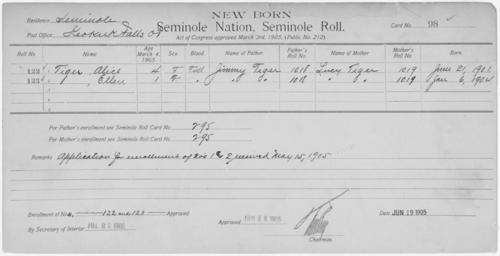 NEW BORN
Residence Seminole
Seminole Nation, Seminole Roll.
Card No. 98
Post Office. Keokuk Falls O.T.
Act of Congress approved March 3rd, 1905, (Public No. 212).
Roll No. Age March 4, 1905 Sex Blood Name of Father Father's Roll No. Name of Mother Mother's Roll No. Born
122 Tiger, Alice 4 F Full Jimmy Tiger 1018 Lucy Tiger 1019 June 21, 1901
123 " , Ellen 1 F " " " 1018 " " 1019 Jan 6, 1904
For Father's enrollment see Seminole Roll Card No. 295
For Mother's enrollment see Seminole Roll Card No. 295
Remarks Application for enrollment of Nos 1 & 2 received May 15, 1905
Enrollment of Nos. 122 and 123 Approved
Approved 1905
DATE JUN 19 1905
By Secretary of Interior JUL 22 1905
Chairman